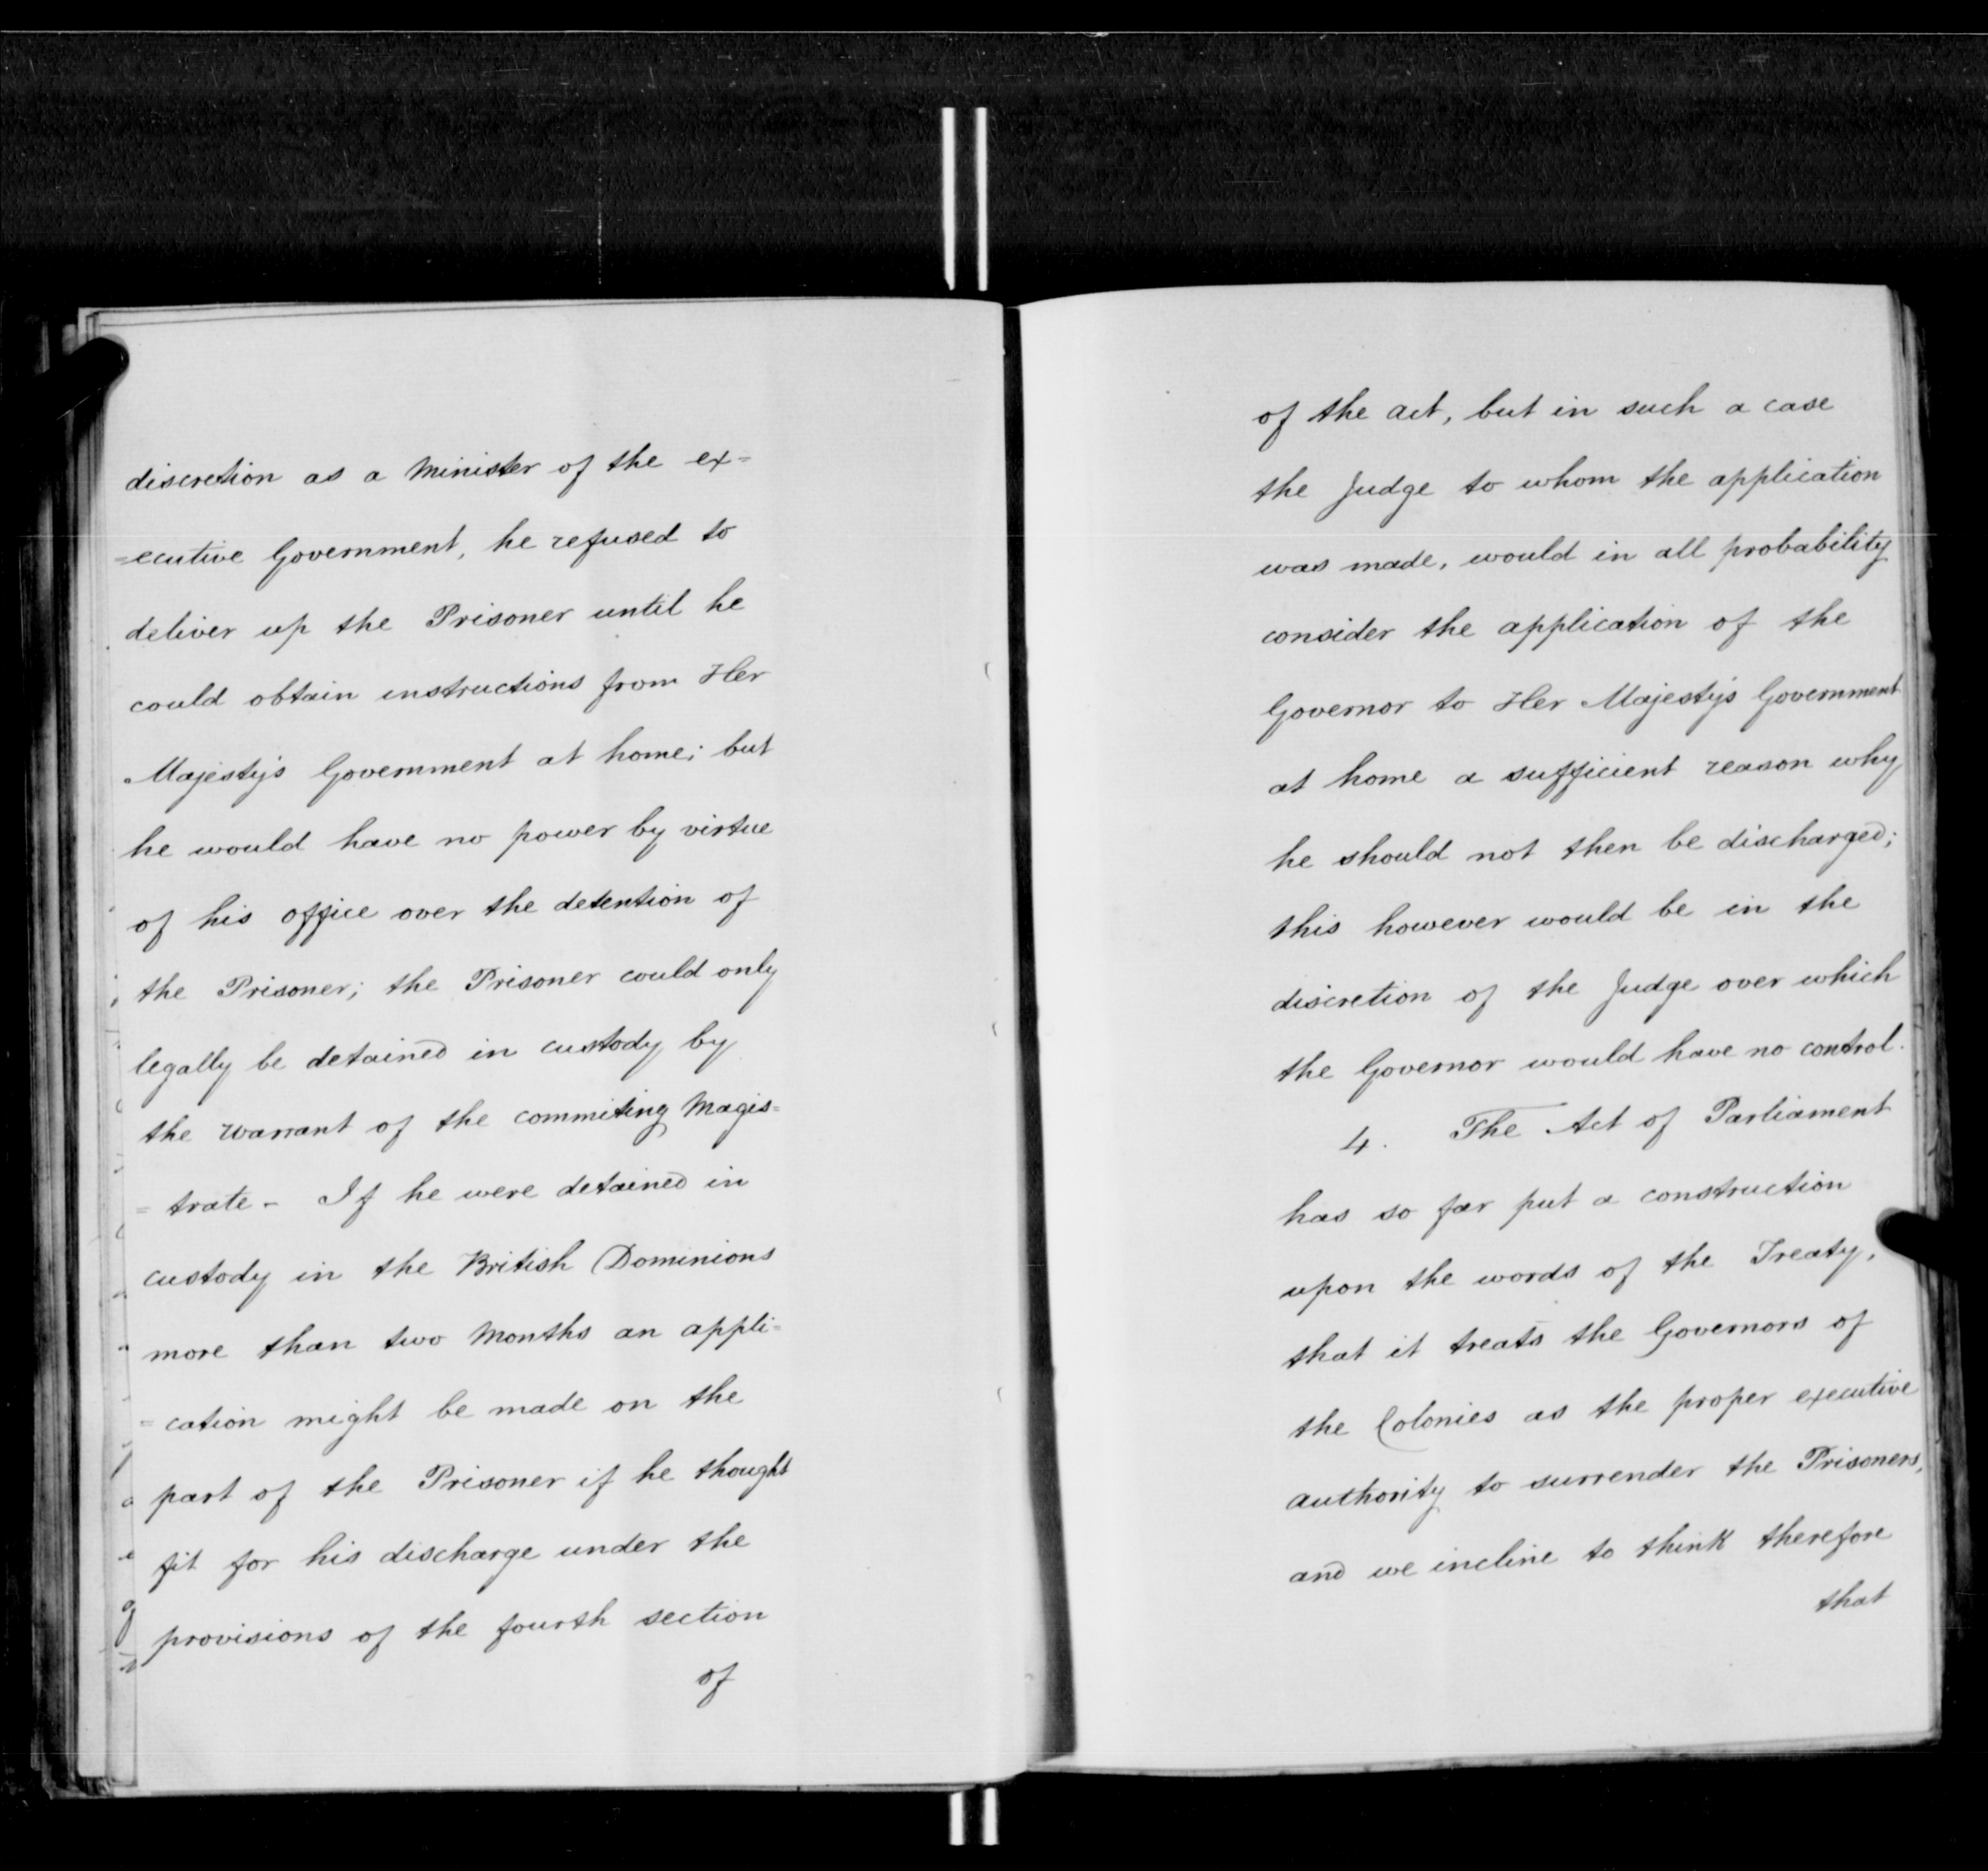 discretion as a Minister of the ex=
=ecutive Government, he refused to
deliver up the Prisoner until he
could obtain instructions from Her
Majesty's Government at home; but
he would have no power by virtue
of his office over the detention of
the Prisoner; the Prisoner could only
legally be detained in custody by
the warrant of the commiting Magis=
=trate - If he were detained in
custody in the British Dominions
more than two Months an appli=
=cation might be made on the
part of the Prisoner if he thought
fit for his discharge under the
provisions of the fourth section
of
of the act, but in such a case
the Judge to whom the application
was made, would in all probability
consider the application of the
Governor to Her Majesty's Government
at home a sufficient reason why
he should not then be discharged;
this however would be in the
discretion of the Judge over which
the Governor would have no control.
4. The Act of Parliament
has so far put a construction
upon the words of the Treaty,
that it treats the Governors of
the Colonies as the proper executive
authority to surrender the Prisoners,
and we incline to think therefore
that